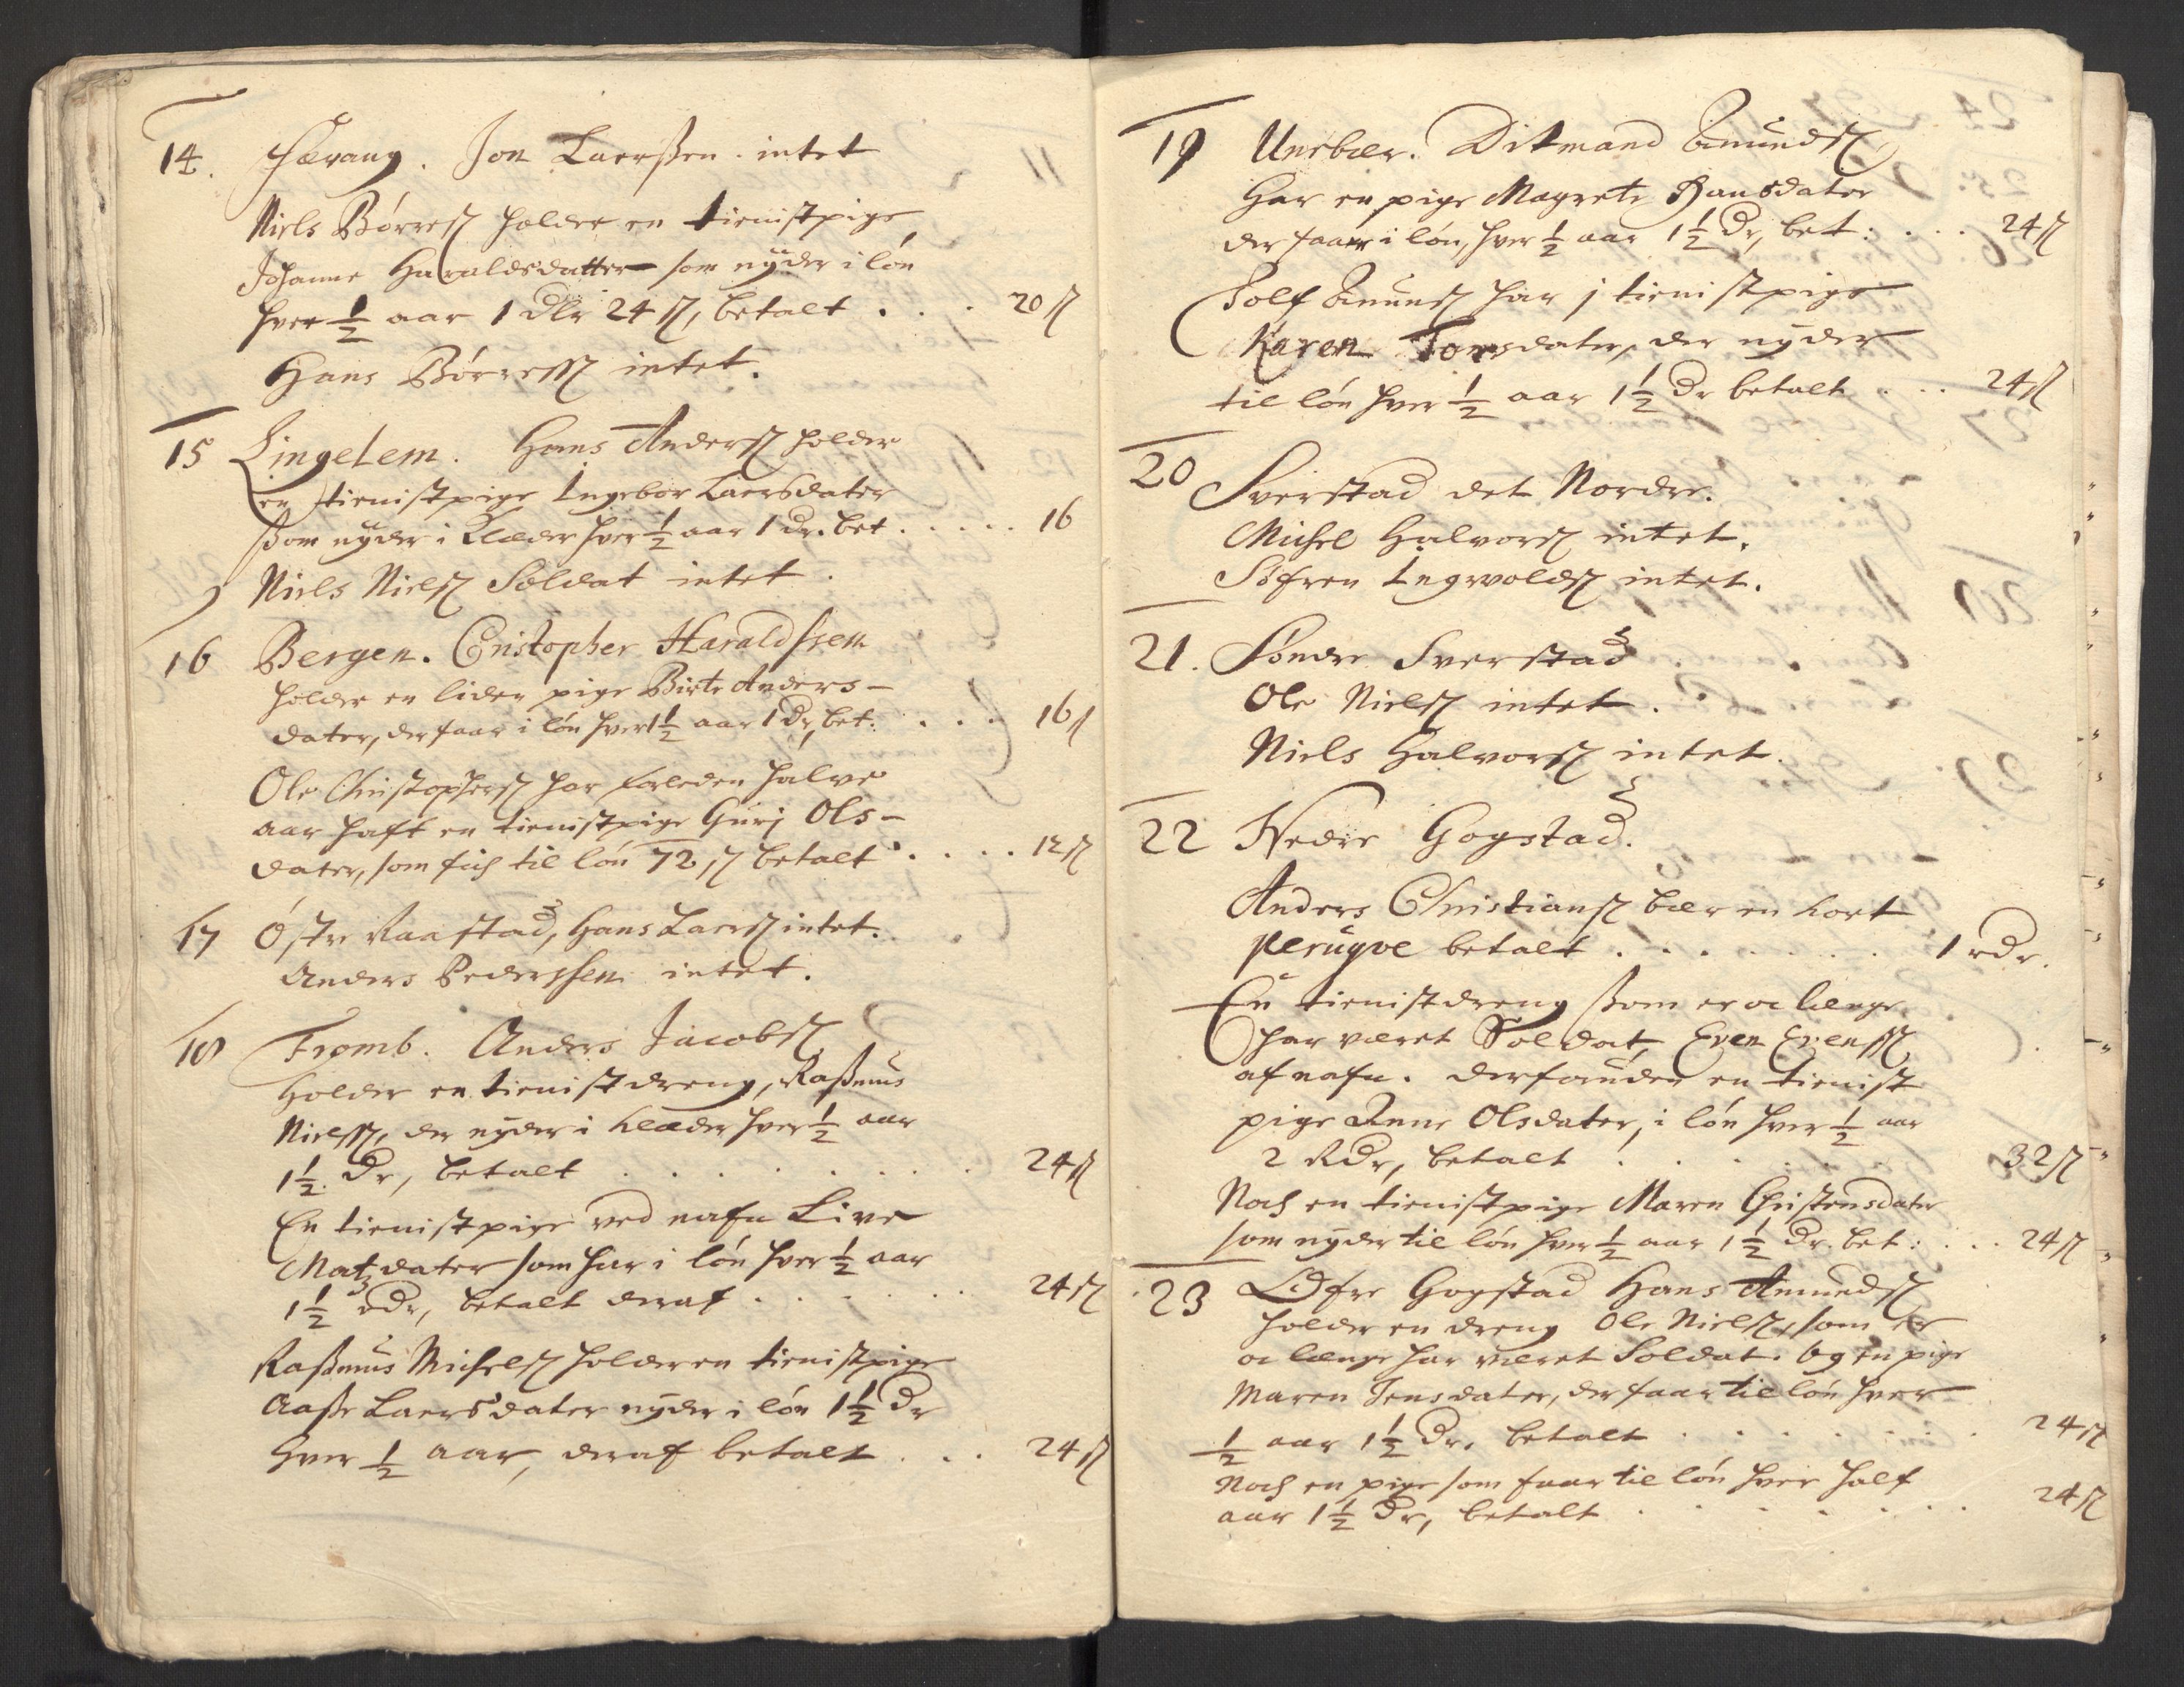 14. Hævang. Jon Laerssen. intet
Niels Børres𝔷 holder en tienistpige
Johanne Haraldsdatter som nyder i løn
hver ½ aar 1 dlr 24 s, betalt . . . 20 s
Hans Børress𝔷 intet.
15 Lingelem. Hans Anders𝔷 holder
en tienistpige Ingebor Laersdater
ssom nyder i Klæder hver ½ aar 1 dr. bet . . . . . 16
Niels Niels𝔷 Soldat intet.
16 Bergen. Cristopher Haraldssen
holder en liden pige Birte Anders-
dater, der faar i løn hver ½ aar 1 dr, bet: . . . 16 s
Ole Christophers𝔷 har forleden halve
aar haft en tienistpige Gurj Ols-
dater, som fich til løn 72 s betalt . . . . 12 s
17 Østre Raastad, Hans Laers𝔷 intet.
Anders Pederssen intet.
18 Fromb. Anders Jacobs𝔷
Holder en tienistdreng, Rassmus
Nielss𝔷, der nyder i klæder hver ½ aar
1½ dr, betalt . . . . . . . . 24 s
En tienistpige ved nafn Live
Matzdater som har i løn hver ½ aar
1½ rdr, betalt deraf . . . . . . 24 s
Rassmus Michels𝔷 holder en tienistpige
Aasse Laersdater nyder i løn 1½ dr
hver ½ aar, deraf betalt . . . 24 s
19 Unebær. Ditmand Amunds𝔷
Har en pige Magrete Hansdater
der faar i løn, hver ½ aar 1½ dr, bet: . . . 24 s
Tolf Amuns𝔷 har j tienistpige
Karen Torsdater, der nyder
til løn hver ½ aar 1½ dr betalt . . . 24 s
20 Sverstad det Nordre.
Michel Halvors𝔷 intet.
Søfren Ingvolds𝔷 intet.
21. Søndre Sverstad
Ole Niels𝔷 intet.
Niels Halvors𝔷 intet.
22 Nedre Gogstad.
Anders Christians𝔷 bær en kort
perugve betalt . . . . . . . 1 rdr.
En tienistdreng ssom er oc længe
har været Soldat, Even Evenss𝔷
af nafn. Der foruden en tienist
pige Anne Olsdater, i løn hver ½ aar
2 Rdr, betalt . . . . . . 32 s
Noch en tienistpige Maren Christensdater
som nyder til løn hver ½ aar 1½ dr. bet: . . . 24 s
23 Øfre Gogstad Hans Amunds𝔷
holder en dreng Ole Niels𝔷, som er
oc længe har været Soldat. Og en pige
Maren Jensdater, der faar til løn hver
½ aar 1½ dr. betalt . . . . . . . 24 s
Noch en pige som faar til løn hver half
aar 1½ dr, betalt . . . . . . 24 s